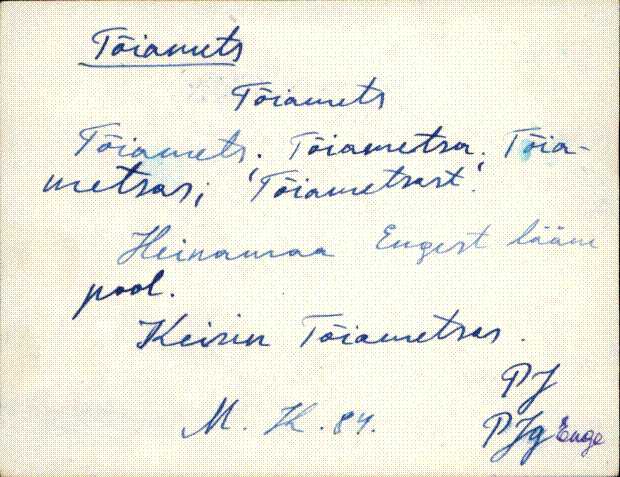 Tõiamets
Tõiamets
Tõiamets; Tõiametsa; Tõia-
metsas; 'Tõiametsast.
Heinamaa Engest lääne
pool.
Keisin Tõiametsas.
PJ
M. K. 84.
PJg Enge